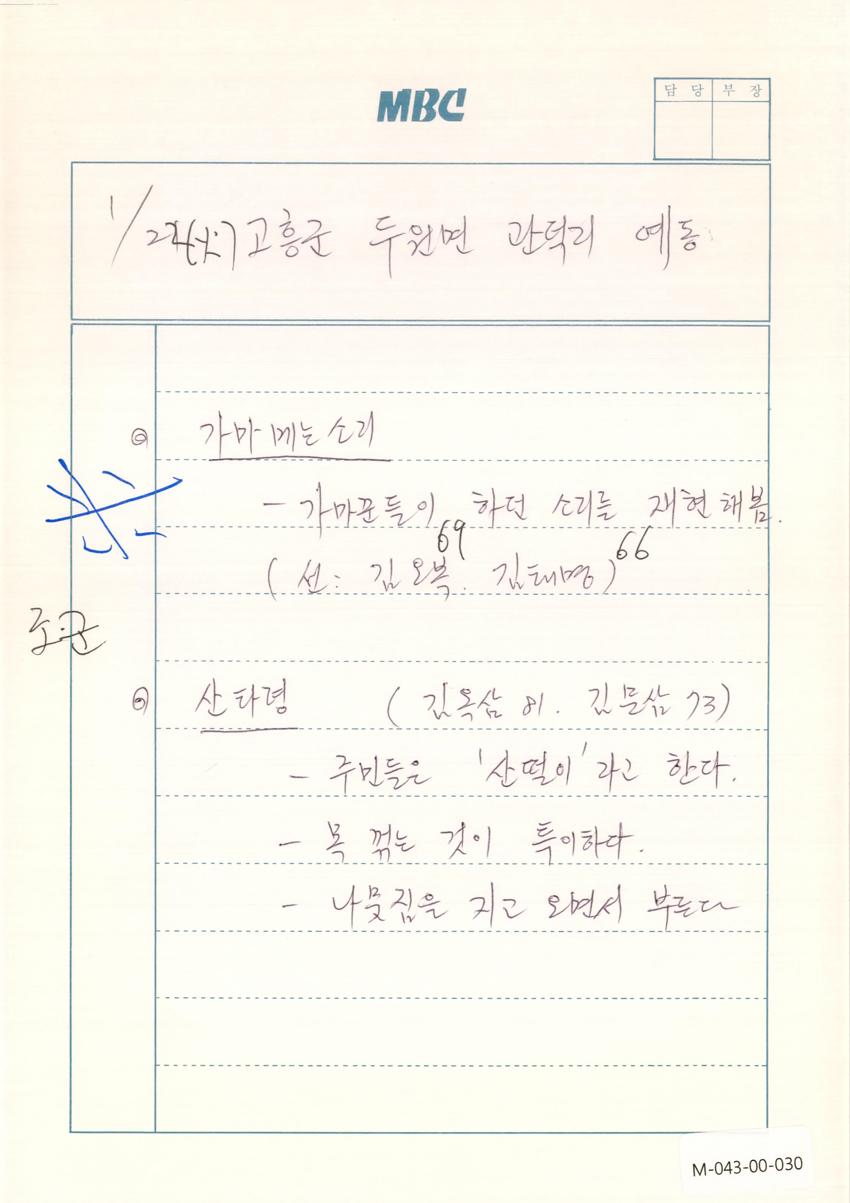 MBC
담 당 부 장
고흥군 두원면 관덕리 예동
◎ 가마메는소리
- 가마꾼들이 하던 소리를 재현해봄.
69 66
(선: 김오복. 김태명)
◎ 산타령 (김옥삼 81. 김문삼 73)
- 주민들은 '산떨이'라고 한다.
- 목 꺾는 것이 특이하다.
- 나뭇짐을 지고 오면서 부른다
M-043-00-030